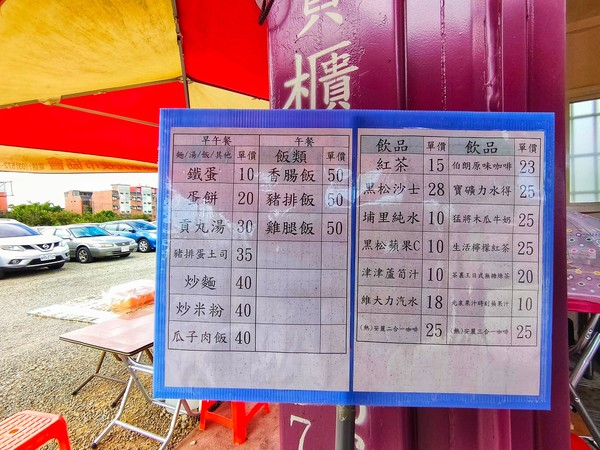 貨
櫃
早午餐 午餐
麵/湯/飯/其他 單價 飯類 單價
鐵蛋 10 香腸飯 50
蛋餅 20 豬排飯 50
貢丸湯 30 雞腿飯 50
豬排蛋土司 35
炒麵 40
炒米粉 40
瓜子肉飯 40
飲品 單價 飲品 單價
紅茶 15 伯朗原味咖啡 23
黑松沙士 28 寶礦力水得 25
埔里純水 10 猛將木瓜牛奶 25
黑松蘋果C 10 生活檸檬紅茶 25
津津蘆筍汁 10 茶裏王日式無糖綠茶 20
維大力汽水 18 元氣果汁時刻蘋果汁 10
(熱)安麗二合一咖啡 25 (熱)安麗三合一咖啡 25
7